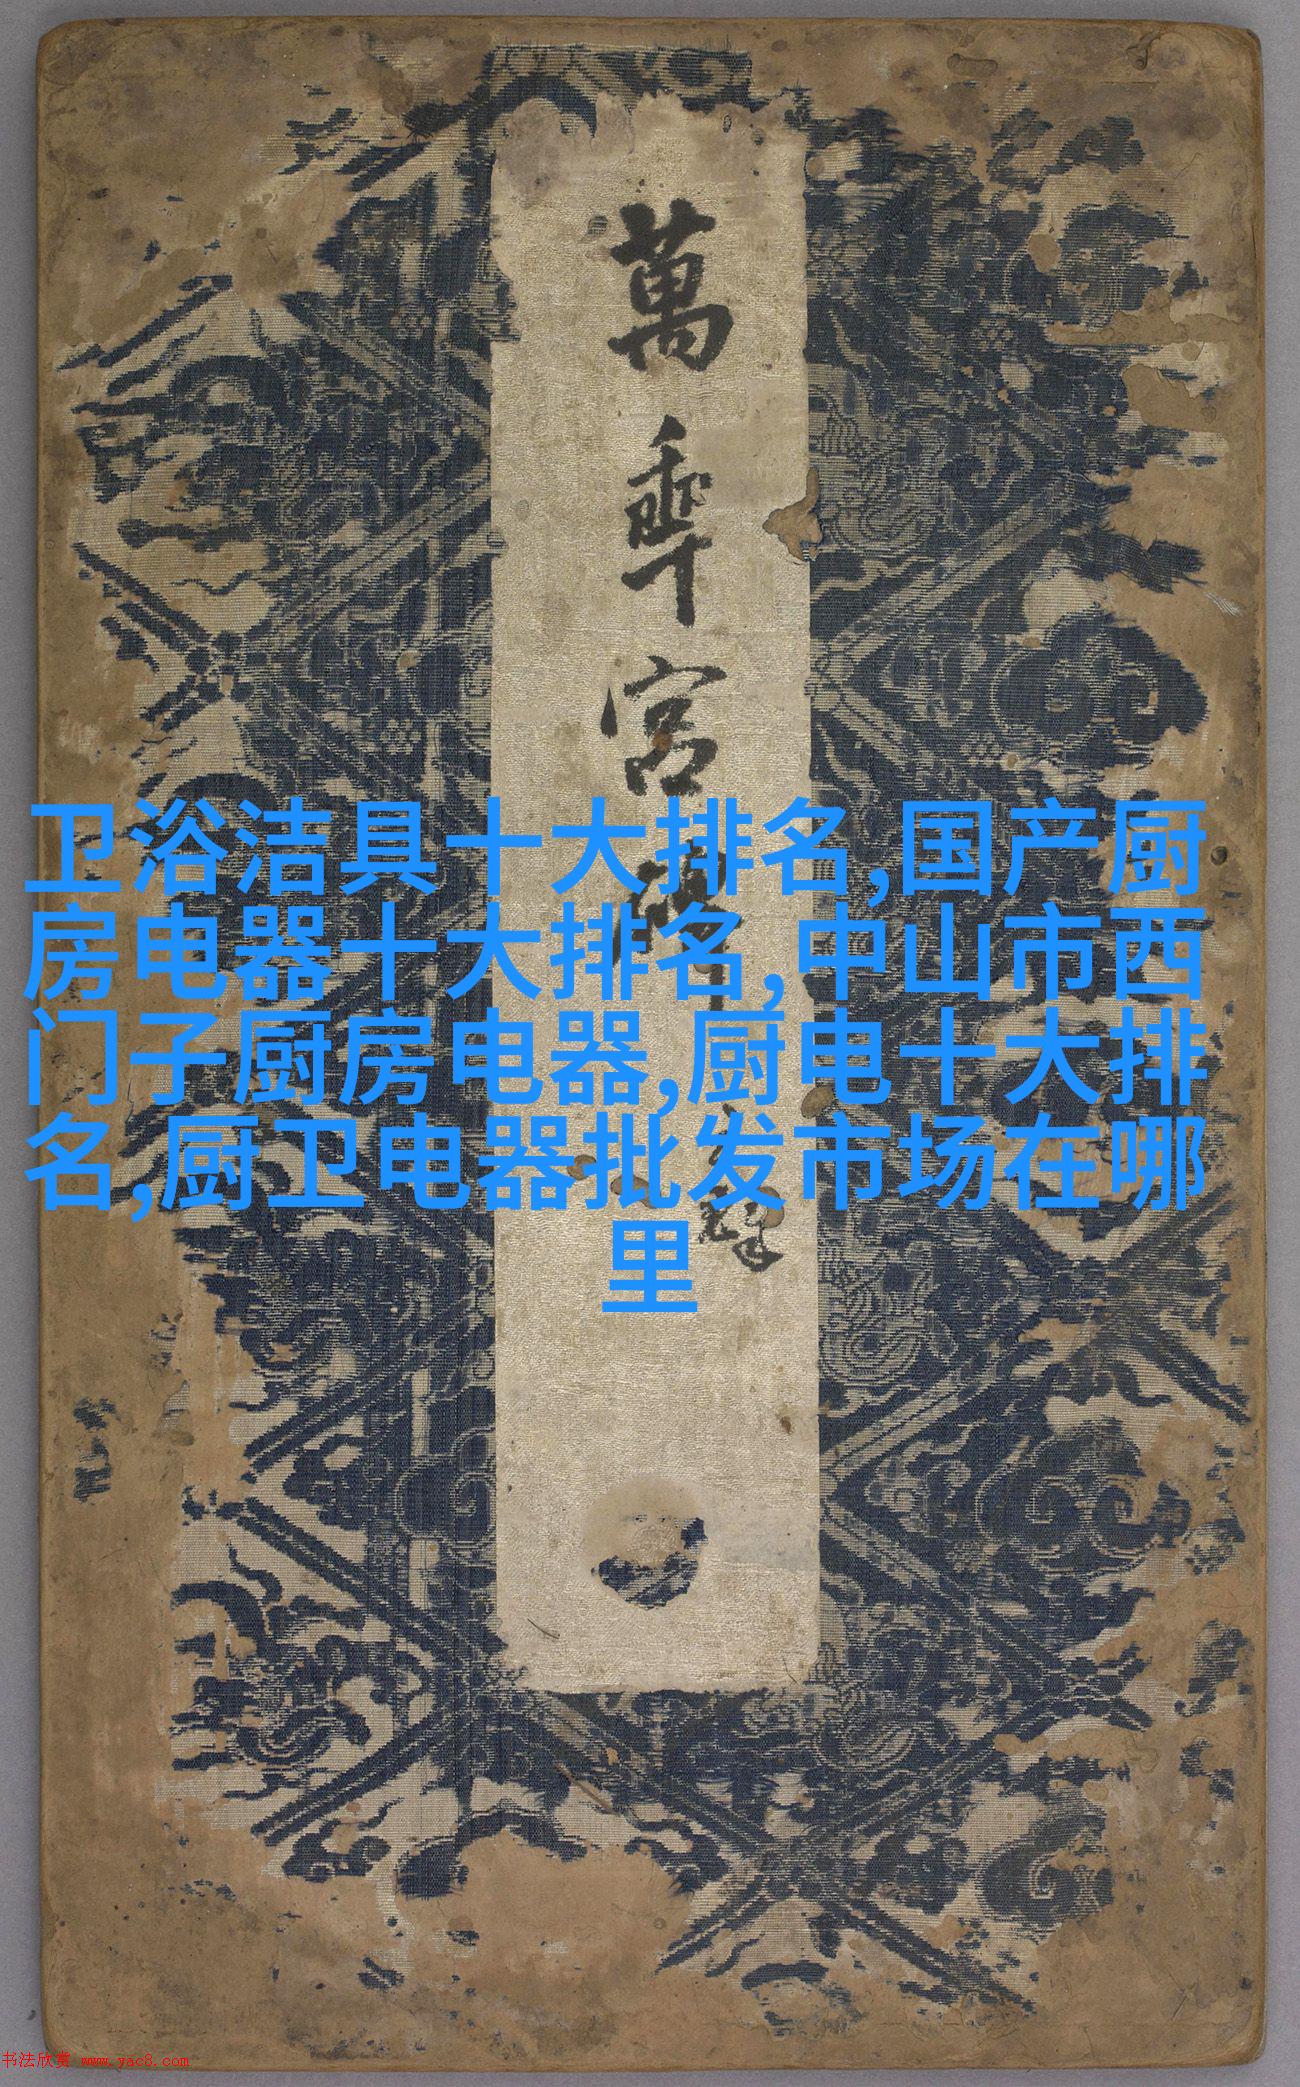 萬
年
宫
碑
卫浴洁具十大排名,国产厨
房电器十大排名,中山市西
门子厨房电器,厨电十大排
名,厨卫电器批发市场在哪
里
书法欣赏 www.yac8.com